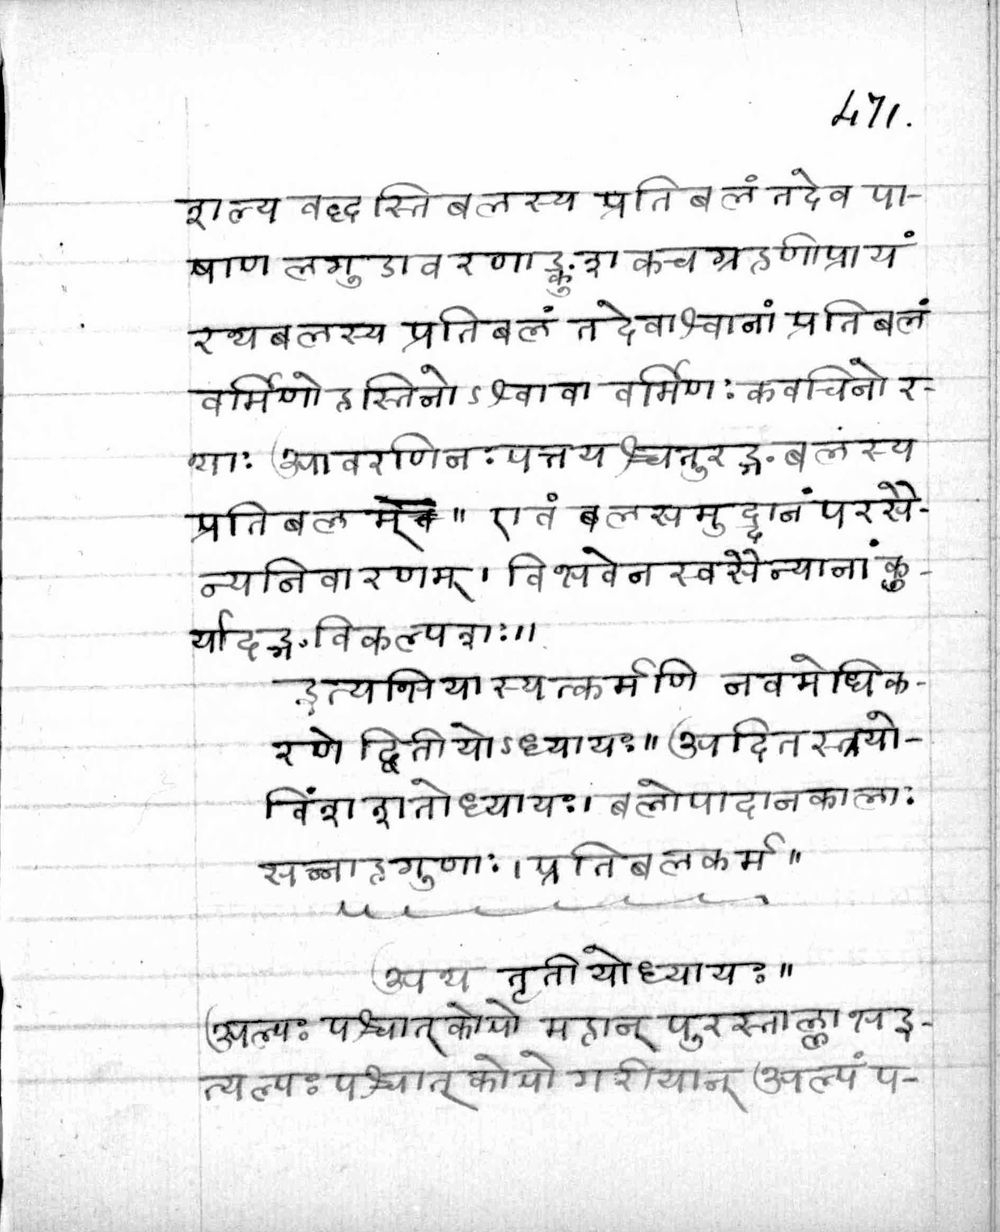 471.
शल्य वद्धस्ति बलस्य प्रति बलं तदेव पा-
षाण लगुडावरणाङ्कुश कचग्रहणीप्रायं
रथबलस्य प्रतिबलं तदेवाश्वानां प्रतिबलं
वर्मिणो हस्तिनोऽश्वावा वर्मिणः कवचिनो र-
थाः आवरणिनः पत्तय श्चतुरङ्ग बलंस्य
प्रतिबलम्॥ एवं बलसमुद्दानं परसै-
न्यनिवारणम्। विभवेन स्वसैन्यानां कु-
र्यादङ्ग विकल्पशः॥
इत्यभियास्यत्कर्मणि नवमोधिक-
रणे द्वितीयोऽध्यायः॥ आदितस्त्रयो-
विंश शतोध्यायः। बलोपादानकालाः
सन्नाहगुणाः। प्रतिबलकर्म॥
अथ तृतीयोध्यायः॥
अल्पः पश्चात् कोपो महान् पुरस्ताल्लाभ इ-
त्यल्पः पश्चात् कोपो गरीयान् अल्पं प-